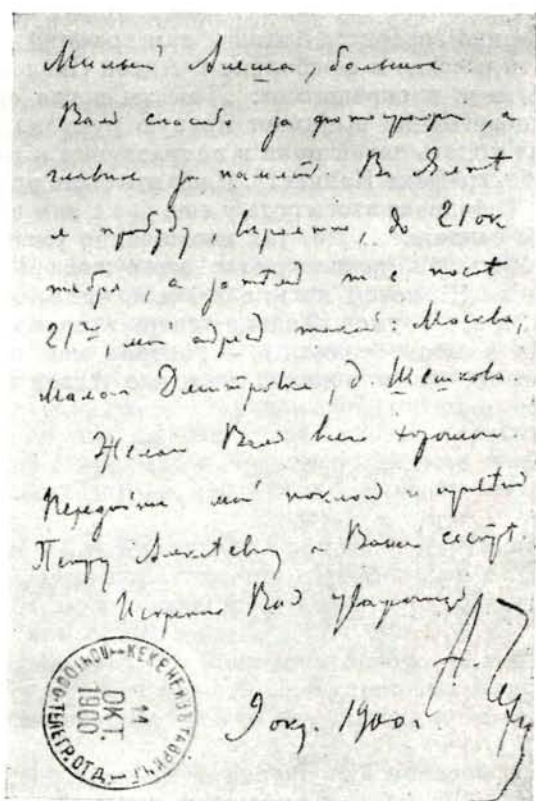 Милый Алеша, большое
Вам спасибо за фотографи, а
главное за память. Въ Ялтѣ
я пробуду вѣроятно, до 21 ок
тября а затѣмъ послѣ
21го мой адресъ такой: Москва,
Малая Дмитровка, д. Шешкова
Желаю Вамъ всего хорошаго
Передайте мой поклонъ и привѣтъ
Петру Алексѣевичу и Вашей сестрѣ.
Искренно Васъ уважающій
А Чехов
9 окт. 1900 г.
КЕКЕНЕИЗЪ ТАВРИЧ.
11
ОКТ.
1900
ПОЧТОВО-ТЕЛЕГР.ОТД.